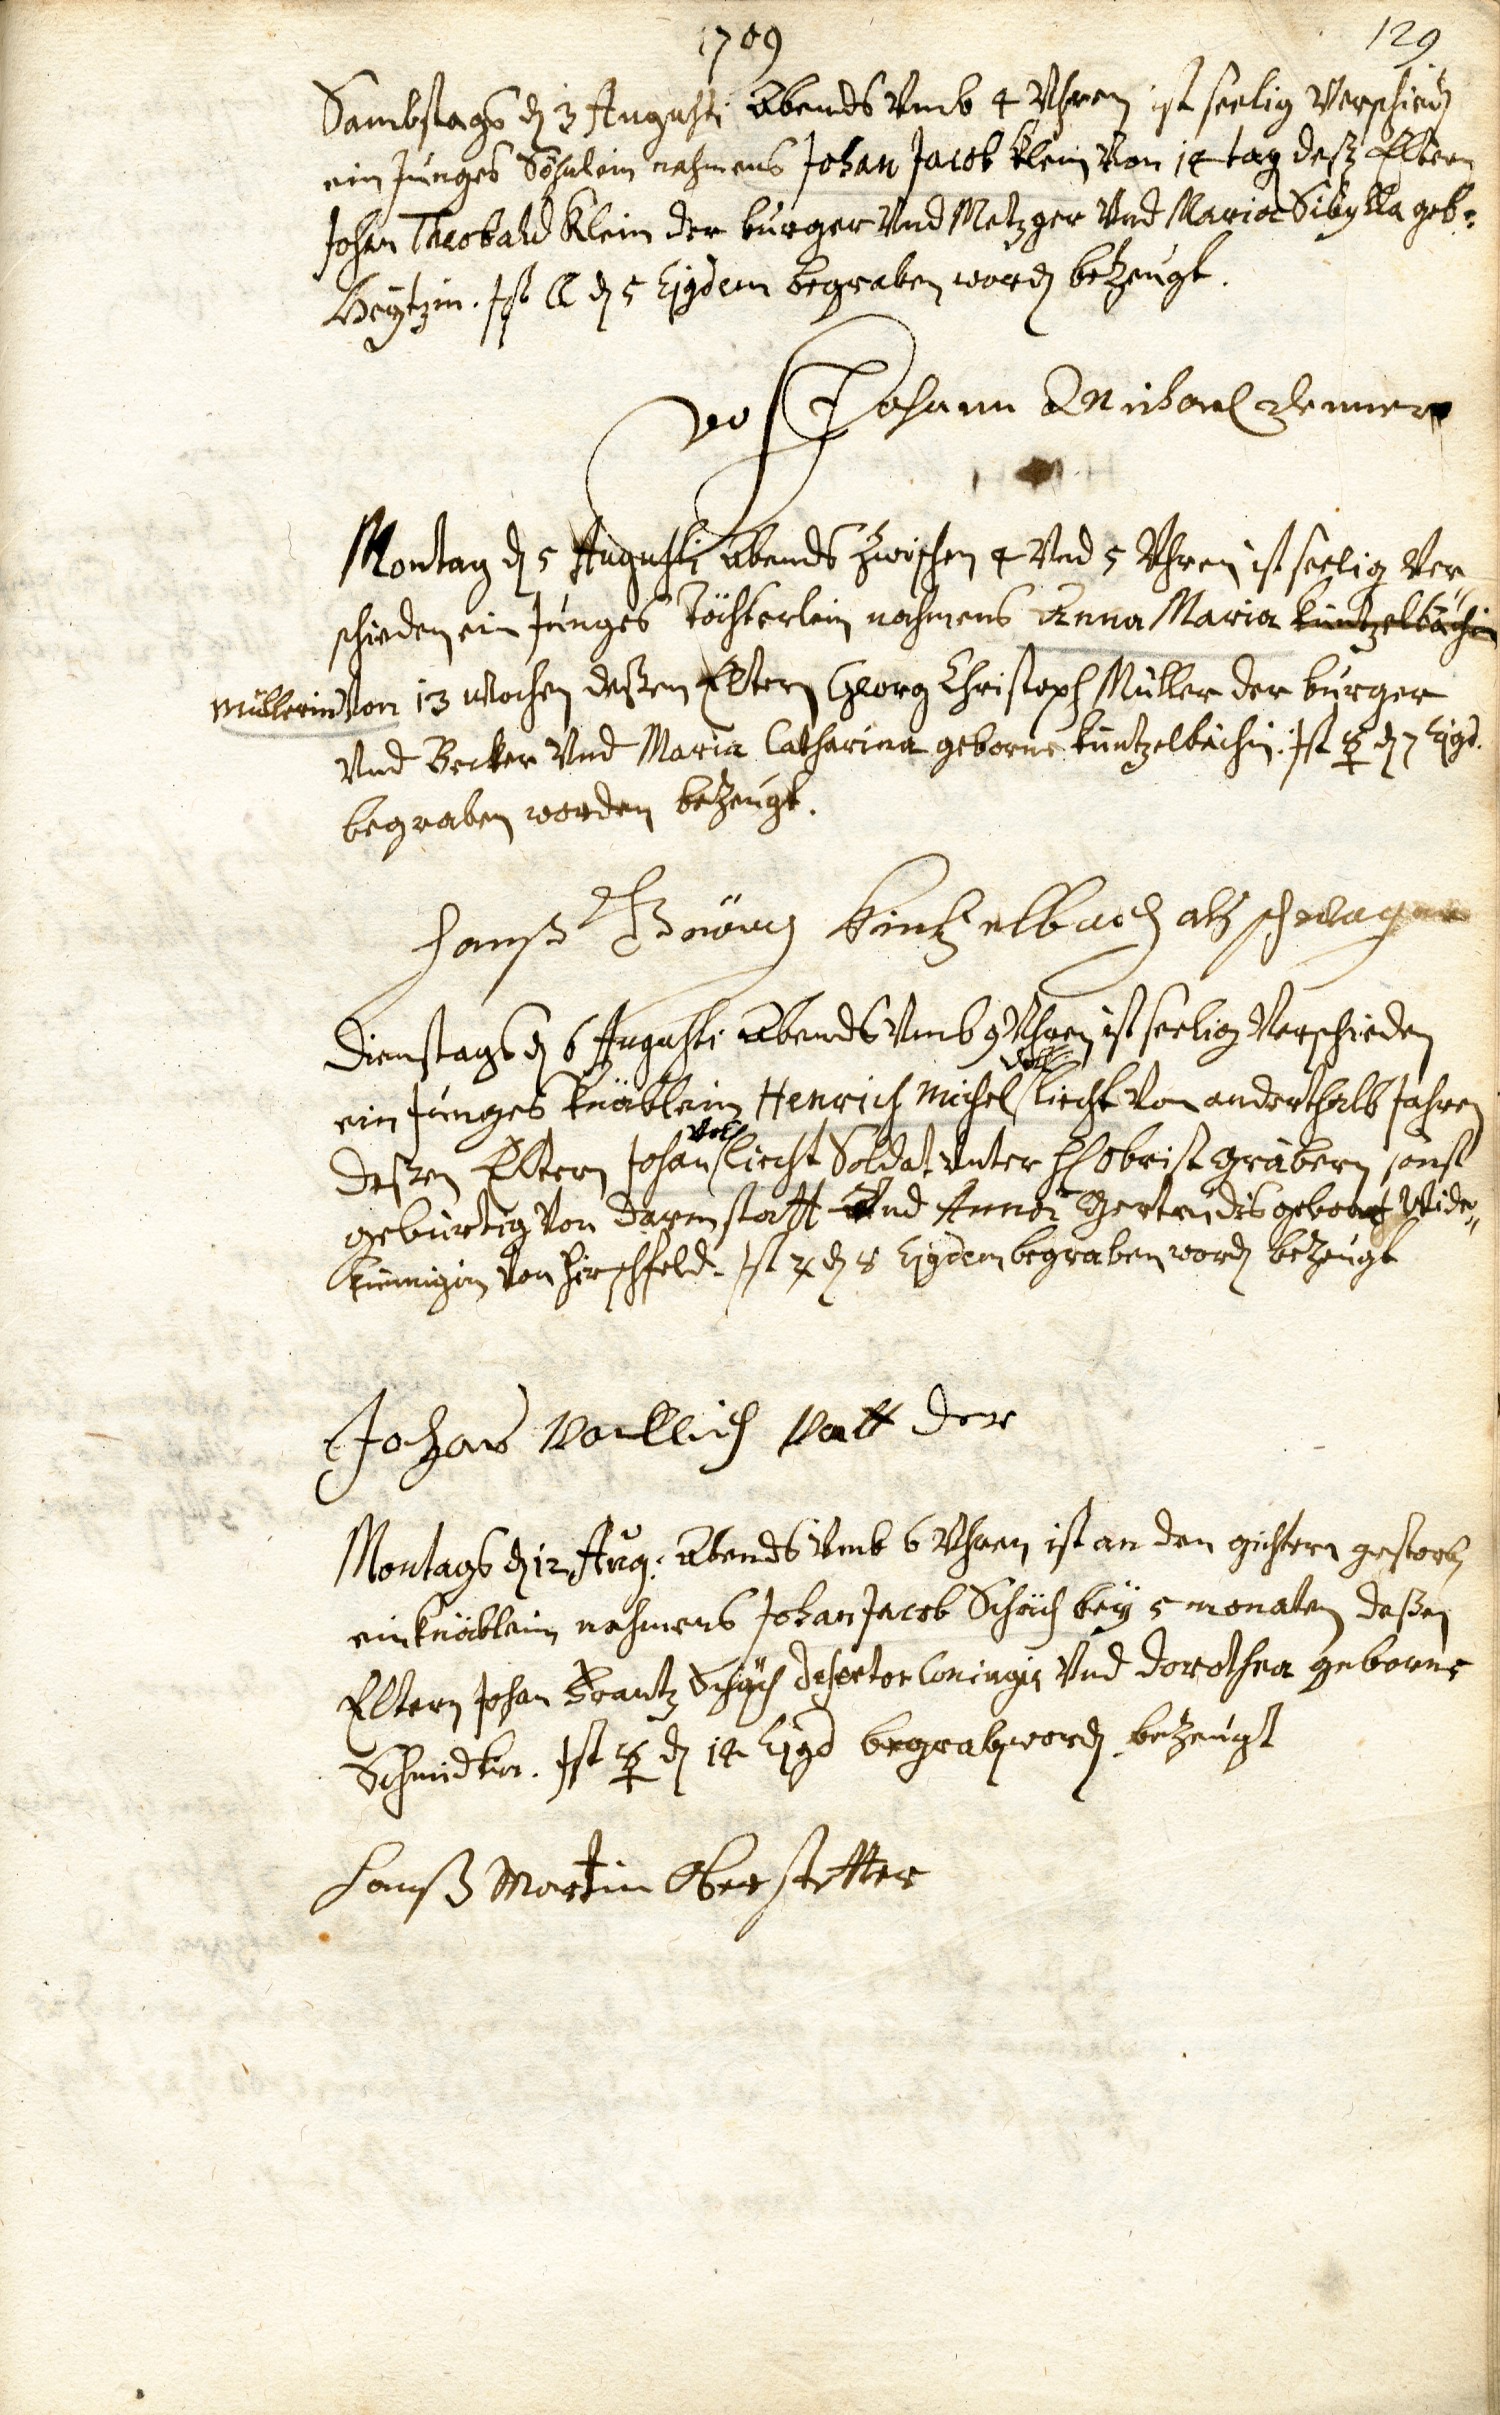 1709
129
Sambstags dẽ 3 Augusti abends vmb 4 Vhren ist seelig Verschieden
ein Junges Söhnlein nahmens Johan Jacob Klein Von 14 tag deßen Eltern
Johan Theobald Klein der burger Vnd Metzger Vnd Maria Sibylla geb:
Ist ☾ dẽ 5 Ejqdem begraben worden bezeugt.
Johann Michael
Montag dẽ 5 Augusti abends Zwischen 4 Vnd 5 Vhren ist seelig Ver
schieden ein Junges Töchterlein nahmens Anna Maria Kuntzelbächin
Müllerin Von 13 Wochen deßen Eltern Georg Christoph Müller der burger
Vnd Becker Vnd Maria Catharina geborne Kuntzelbächin. Ist ☿ dẽ 7 Ejqd.
begraben worden bezeugt.
Hanß Görg Kintzelbach alß schwager
Dienstags dẽ 6 Augusti abends Vmb 9 Vhren ist seelig Verschieden
Voll
ein Junges Knäblein Henrich Michel liecht Von anderthalb Jahren
Vol
deßen Eltern Johan liecht Soldat Vnter H Obrist gräbern sonst
gebürtig Von Darmstatt Vnd Anna Gertrudis geborne Wide„
Von Hirschfeld. Ist ♃ dẽ 8 Ejqdem begraben worden bezeugt
Johans Vollich Vatt der
Montags dẽ 12 Aug: abends Vmb 6 Vhren ist an den gichtern gestorben
ein Knäblein nahmens Johan Jacob Schäch bey 5 monaten deßen
Eltern Johan Frantz Schäch desertor Conjugis Vnd Dorothea geborne
Ist ☿ dẽ 14 Ejqd begraben worden bezeugt
Hanß Martin Oberstetter